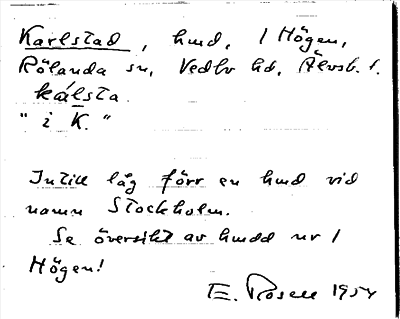 Karlstad, hmd, 1 Högen,
Rölanda sn, Vedbo hd, Älvsb. l.
kálsta.
"i K."
Intill låg förr en hmd vid
namn Stockholm.
Se översikt av hmdd nr 1
Högen!
E. Rosell 1954